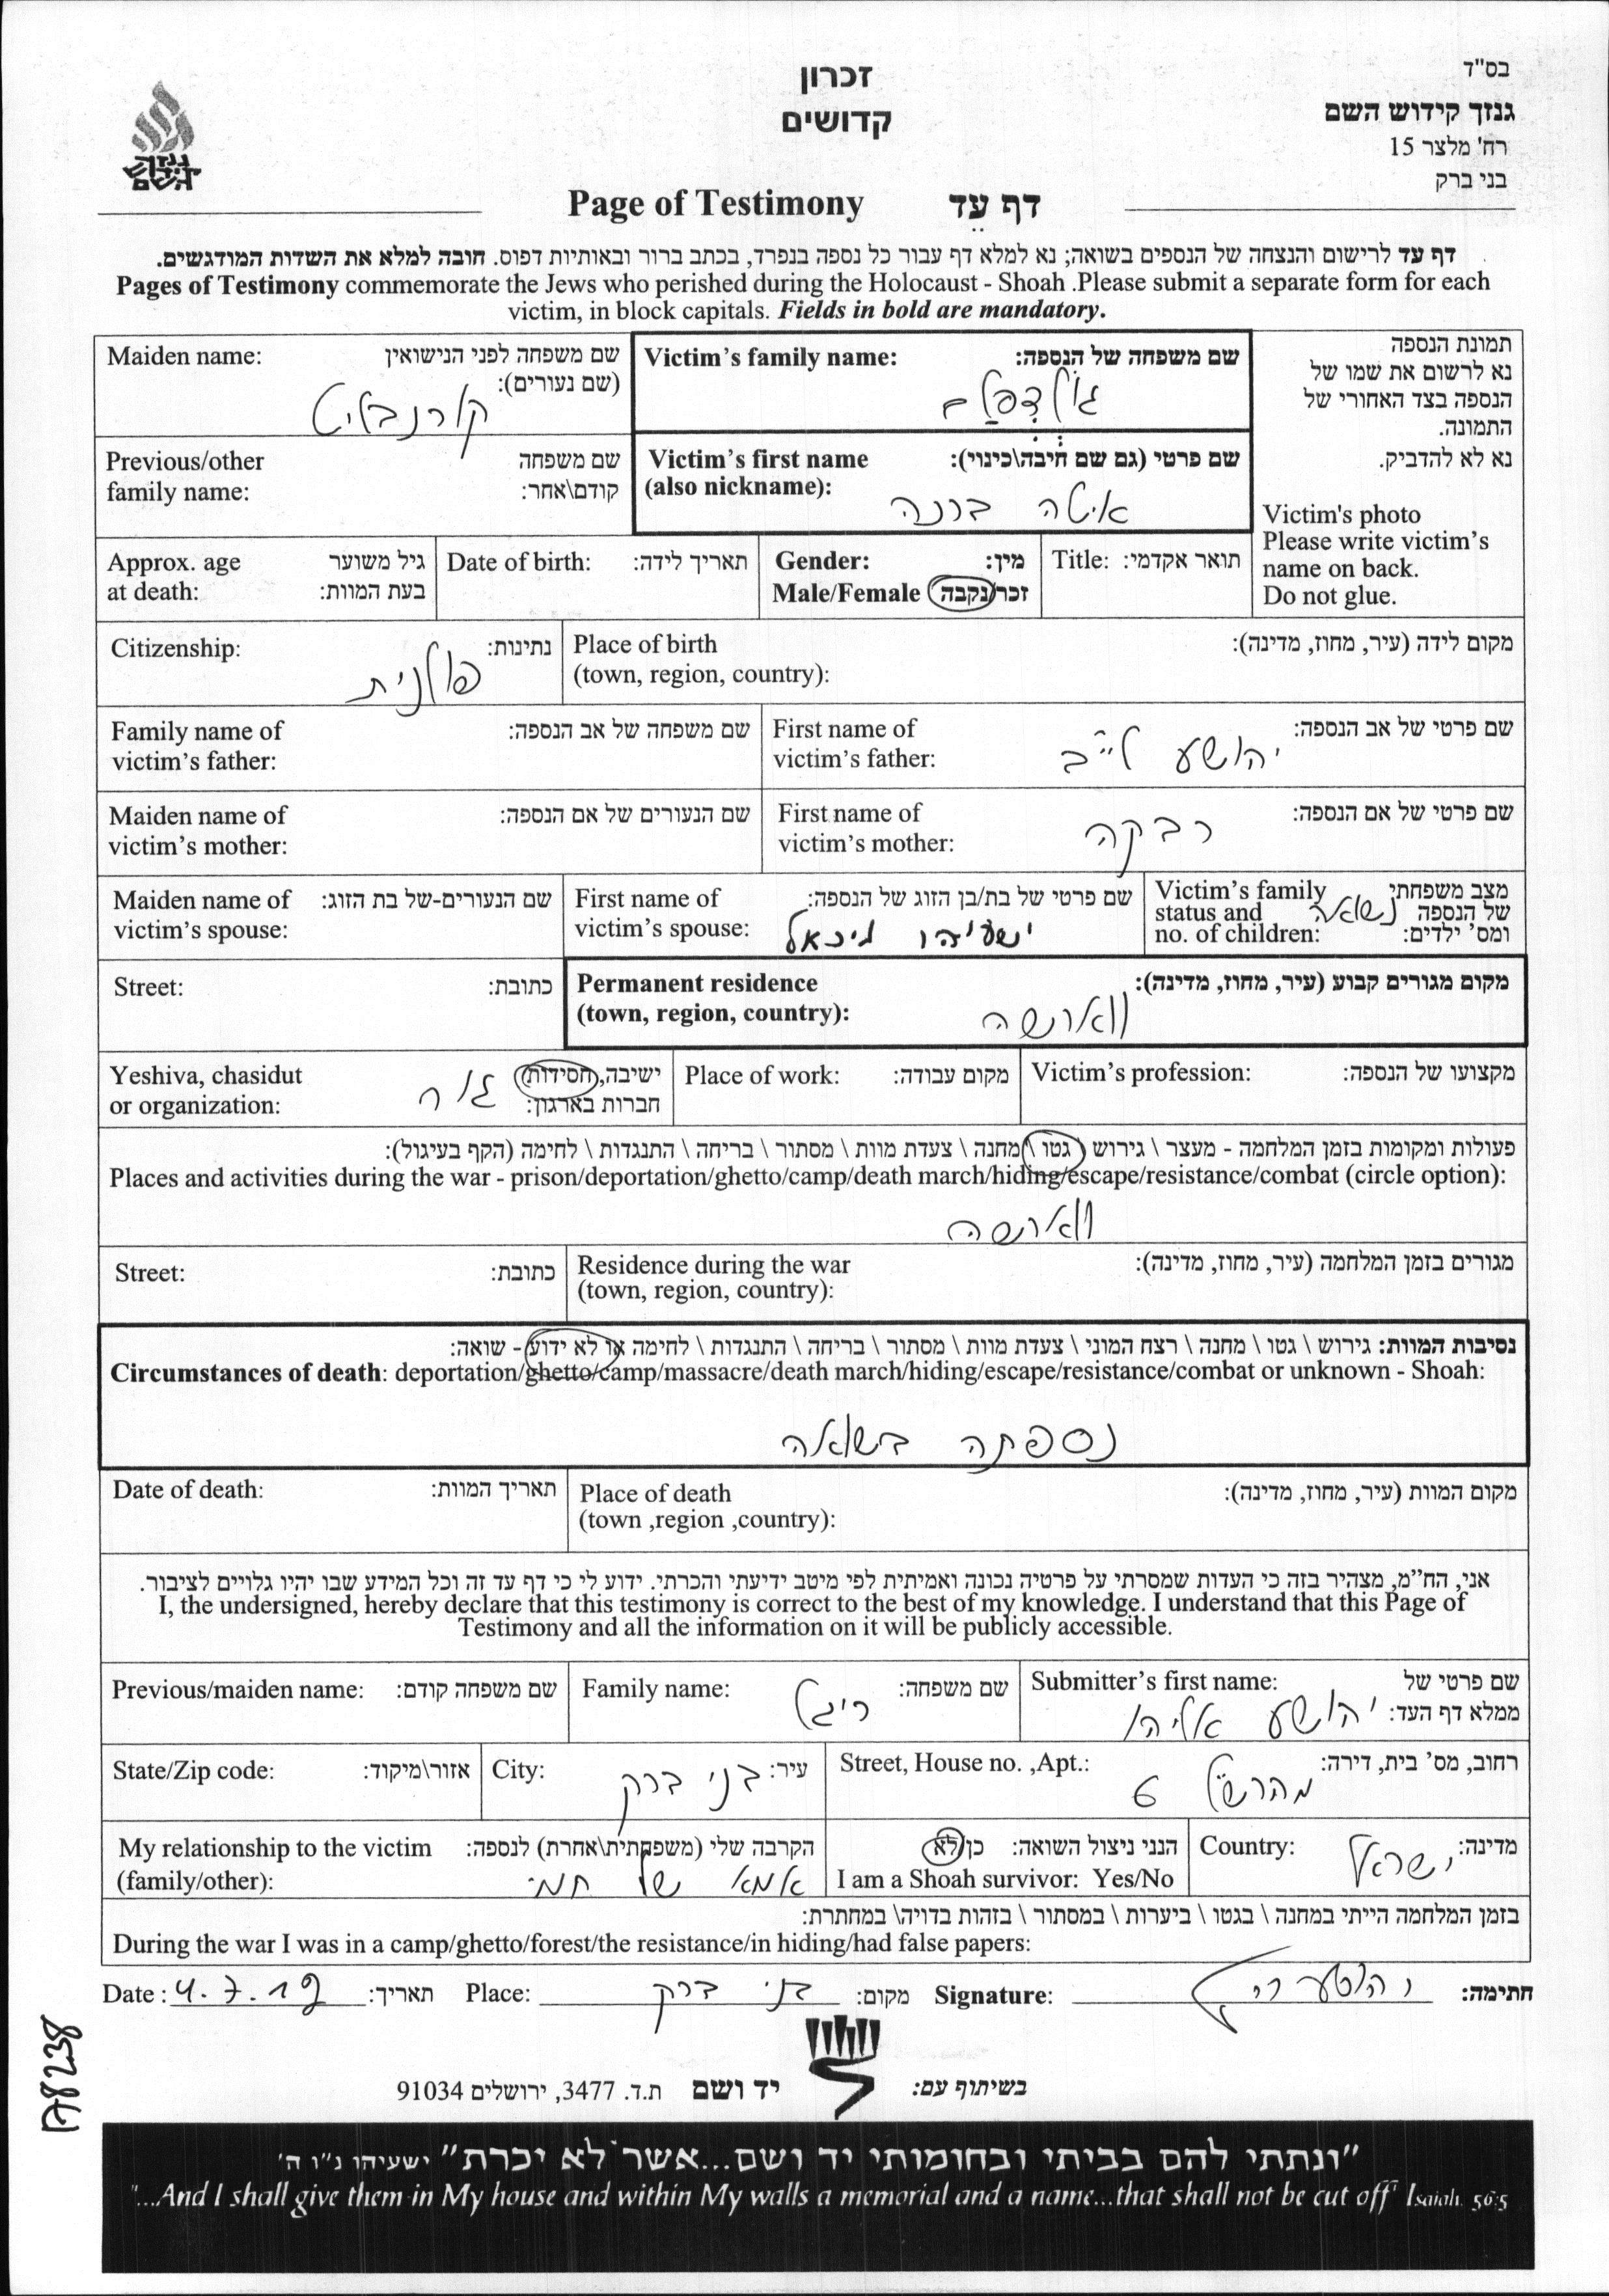 בס"ד
גנזך קידוש השם
רח' מלצר 15
בני ברק
זכרון
קדושים
גנזך
קידוש
השם
Page of Testimony דף עד
דף עד לרישום והנצחה של הנספים בשואה; נא למלא דף עבור כל נספה בנפרד, בכתב ברור ובאותיות דפוס. חובה למלא את השדות המודגשים.
Pages of Testimony commemorate the Jews who perished during the Holocaust - Shoah .Please submit a separate form for each
victim, in block capitals. Fields in bold are mandatory.
תמונת הנספה
נא לרשום את שמו של
הנספה בצד האחורי של
התמונה.
נא לא להדביק.
Victim's photo
Please write victim's
name on back.
Do not glue.
Victim's family name: שם משפחה של הנספה:
Maiden name: שם משפחה לפני הנישואין
(שם נעורים):
קורנבליט
Victim's first name שם פרטי (גם שם חיבה\כינוי):
(also nickname):
איטה ברכה
Previous/other שם משפחה
family name: קודם\אחר:
Title: תואר אקדמי:
Gender: מין:
Male/Female זכר/נקבה
Date of birth: תאריך לידה:
Approx. age גיל משוער
at death: בעת המוות:
Place of birth מקום לידה (עיר, מחוז, מדינה):
(town, region, country):
Citizenship: נתינות:
פולנית
First name of שם פרטי של אב הנספה:
victim's father: יהושע לייב
Family name of שם משפחה של אב הנספה:
victim's father:
First name of שם פרטי של אם הנספה:
victim's mother: רבקה
Maiden name of שם הנעורים של אם הנספה:
victim's mother:
Victim's family מצב משפחתי
status and של הנספה נשואה
no. of children: ומס' ילדים:
First name of שם פרטי של בת/בן הזוג של הנספה:
victim's spouse: ישעיהו מיכאל
Maiden name of שם הנעורים-של בת הזוג:
victim's spouse:
Permanent residence מקום מגורים קבוע (עיר, מחוז, מדינה):
(town, region, country): ווארשה
Street: כתובת:
Victim's profession: מקצועו של הנספה:
Place of work: מקום עבודה:
Yeshiva, chasidut ישיבה, חסידות,
or organization: חברות בארגון: גור
פעולות ומקומות בזמן המלחמה - מעצר \ גירוש \ גטו \ מחנה \ צעדת מוות \ מסתור \ בריחה \ התנגדות \ לחימה (הקף בעיגול):
Places and activities during the war - prison/deportation/ghetto/camp/death march/hiding/escape/resistance/combat (circle option):
ווארשה
Residence during the war מגורים בזמן המלחמה (עיר, מחוז, מדינה):
(town, region, country):
Street: כתובת:
נסיבות המוות: גירוש \ גטו \ מחנה \ רצח המוני \ צעדת מוות \ מסתור \ בריחה \ התנגדות \ לחימה או לא ידוע - שואה:
Circumstances of death: deportation/ghetto/camp/massacre/death march/hiding/escape/resistance/combat or unknown - Shoah:
נספתה בשואה
Place of death מקום המוות (עיר, מחוז, מדינה):
(town ,region ,country):
Date of death: תאריך המוות:
אני, הח"מ, מצהיר בזה כי העדות שמסרתי על פרטיה נכונה ואמיתית לפי מיטב ידיעתי והכרתי. ידוע לי כי דף עד זה וכל המידע שבו יהיו גלויים לציבור.
I, the undersigned, hereby declare that this testimony is correct to the best of my knowledge. I understand that this Page of
Testimony and all the information on it will be publicly accessible.
Submitter's first name: שם פרטי של
ממלא דף העד: יהושע אליהו
Family name: שם משפחה:
ריגל
Previous/maiden name: שם משפחה קודם:
Street, House no. ,Apt.: רחוב, מס' בית, דירה:
מהרש"ל 6
City: עיר: בני ברק
State/Zip code: אזור\מיקוד:
Country: מדינה: ישראל
הנני ניצול השואה: כן/לא
I am a Shoah survivor: Yes/No
My relationship to the victim הקרבה שלי (משפחתית\אחרת) לנספה:
(family/other): אמא של חמי
בזמן המלחמה הייתי במחנה \ בגטו \ ביערות \ במסתור \ בזהות בדויה\ במחתרת:
During the war I was in a camp/ghetto/forest/the resistance/in hiding/had false papers:
Date : 4.7.19 תאריך: Place: בני ברק מקום: Signature: חתימה:
בשיתוף עם: יד ושם ת.ד. 3477, ירושלים 91034
"ונתתי להם בביתי ובחומותי יד ושם...אשר לא יכרת" ישעיהו נ"ו ה'
"...And I shall give them in My house and within My walls a memorial and a name...that shall not be cut off" Isaiah. 56:5